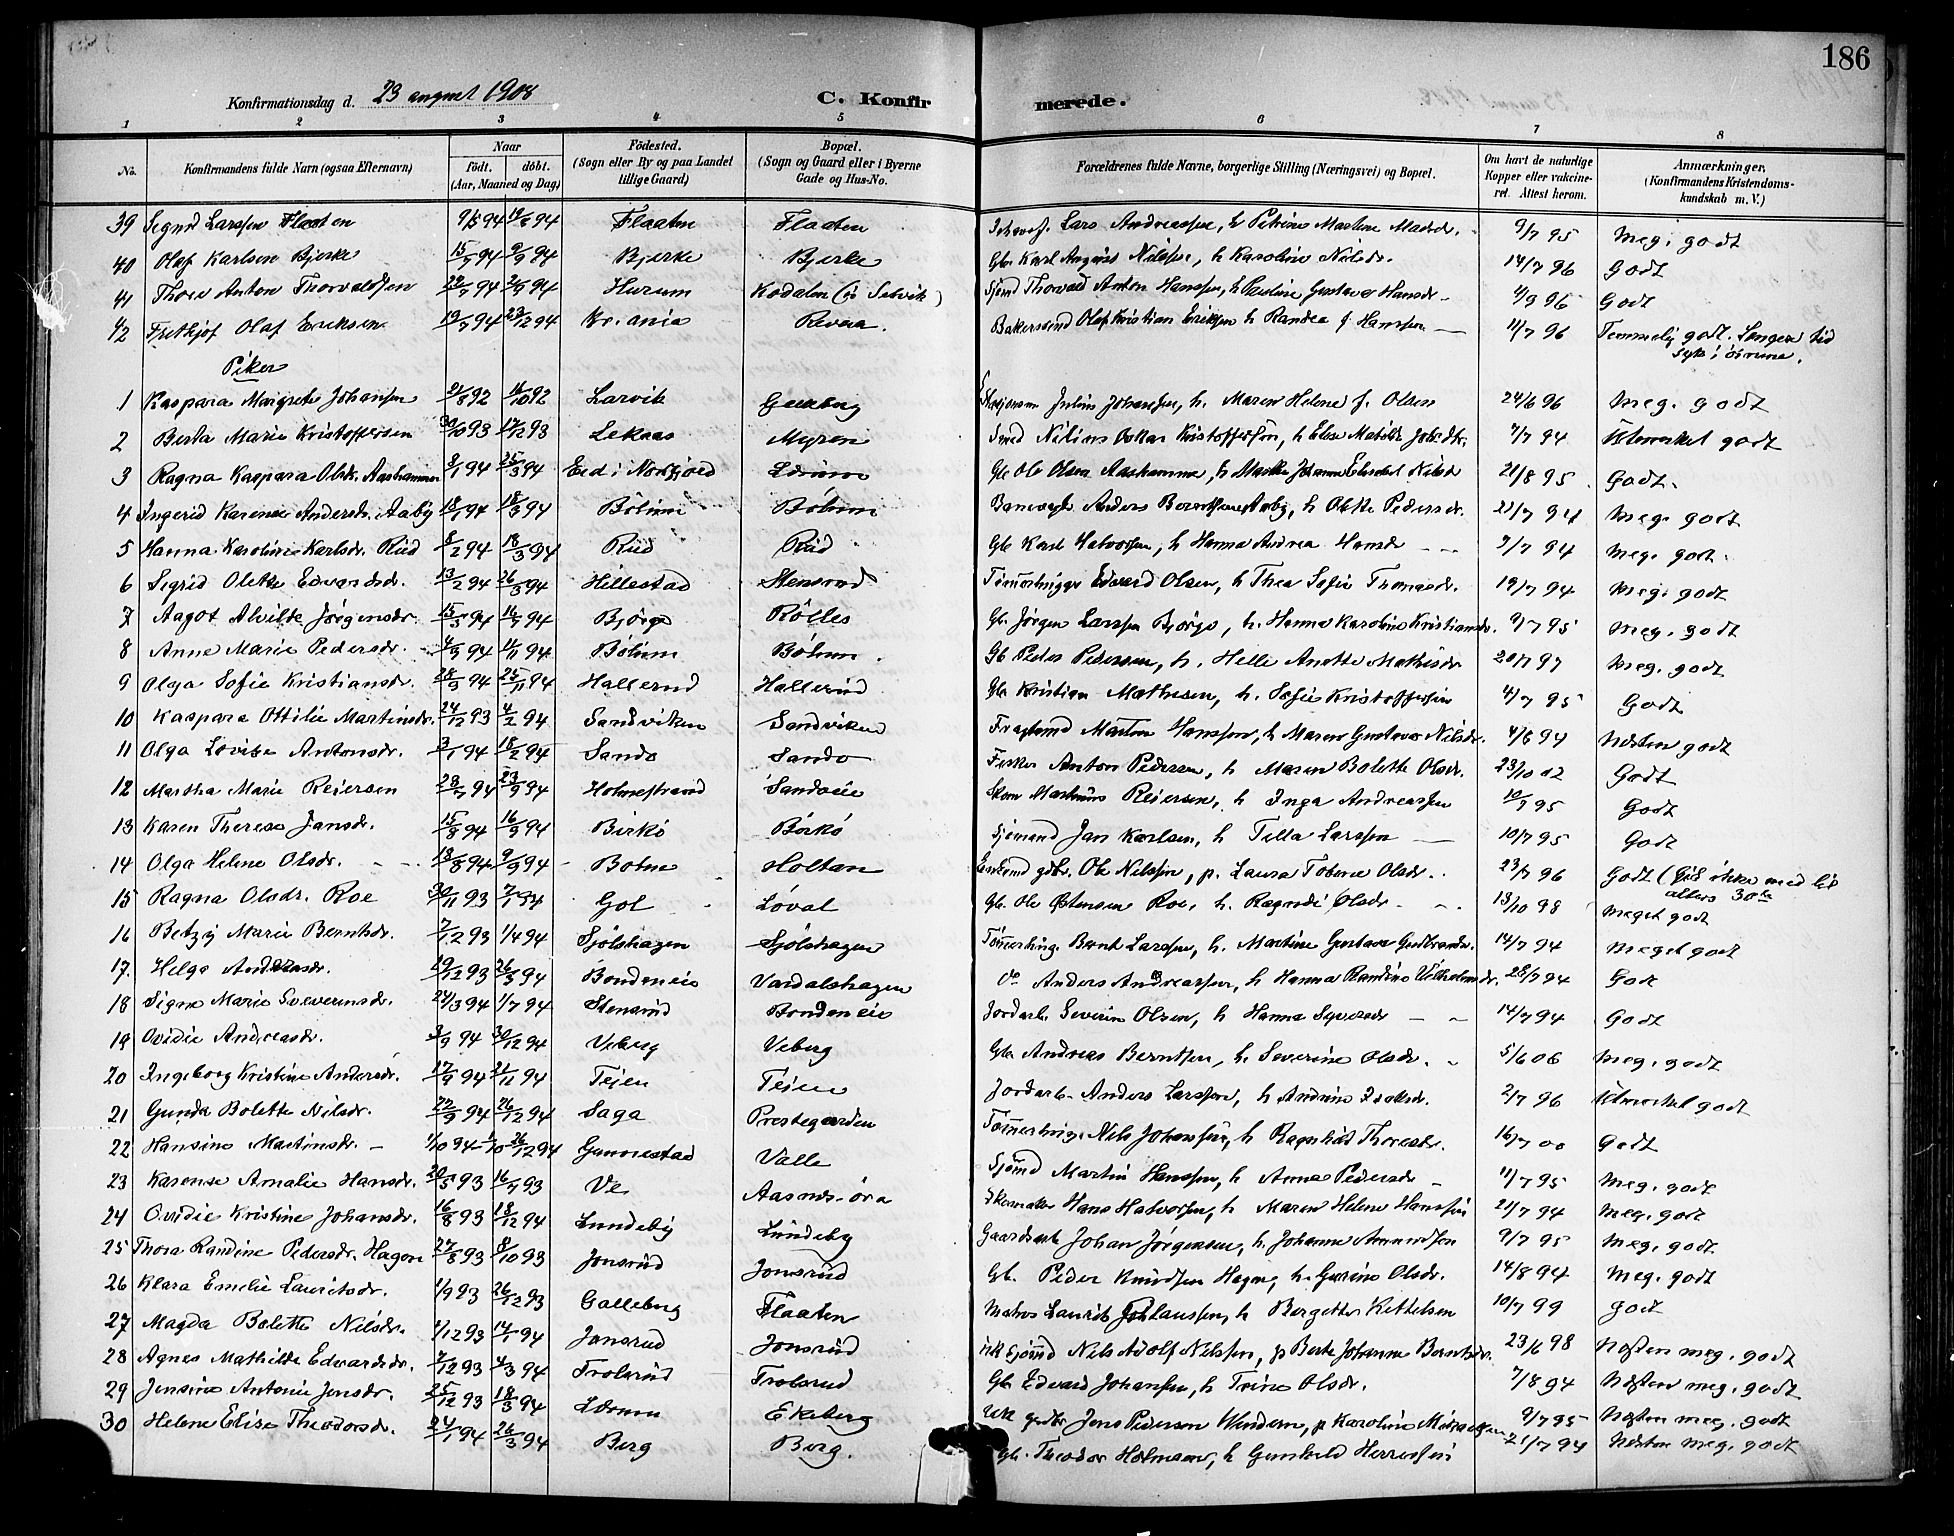 186
Konfirmationsdag d. 23 august 1908
C. Konfirmerede.
1 2 3 4 5 6 7 8
No. Konfirmandens fulde Navn (ogsaa Efternavn) Naar født. døbt. (Aar, Maaned og Dag) Fødested. (Sogn eller By og paa Landet tillige Gaard) Bopæl. (Sogn og Gaard eller i Byerne Gade og Hus-No. Forældrenes fulde Navne, borgerlige Stilling (Næringsvei) og Bopæl. Om havt de naturlige Kopper eller vakcineret. Attest herom. Anmærkninger. (Konfirmandens Kristendomskundskab m. V.)
39 Sigurd Larssen Flaaten 94 94 Flaaten Flaaten Lars Andreassen, h Petrine Martine Madsdr. 9/7 95 Meg. godt
40 Olaf Karlsen Bjerke 15/7 94 9/9 94 Bjerke Bjerke Gbr Karl August Nilssen, h Karoline Nilsdr. 14/7 96 Godt
41 Thore Anton Thorvaldsen 94 94 Hurum Kodalen (i Selvik) Sjømd Thorvald Anton Hanssen, h Pauline Gustava Hansdr 4/9 96 Godt
42 Fritkjof Olaf Eriksen 19/7 94 94 Kr.ania Revaa. Bakersvend Olaf Kristian Eriksen h Randea f Hanssen 11/7 96 Temmelig godt. Længere tid syk i øinene.
Piker
1 Kaspara Margrete Johansen 21/8 92 16/10 92 Larvik Gausberg Julius Johanssen, h. Maren Helene f. Olsen 24/6 96 Meg. godt
2 Berta Marie Kristoffersen 30/10 93 17/12 93 Lekaas Myren Smed Nilius Oskar Kristoffersen, h Elise Matilde 7/7 94 Udmerket godt
3 Ragna Kaspara Olsdr. Aashammer 2/1 94 25/3 94 Eid i Nordfjord Lørum Gbr Ole Olsen Aashammer, h Marthe Johanne Nilsdr 21/8 95 Godt.
4 Ingerid Karense Andersdr. Aaby 18/1 94 18/3 94 Bølum Bølum Banevogt. Anders Berntsen Aaby, h Olette Pedersdr. 21/7 94 Meg. godt
5 Hanna Karoline Karlsdr. Rud 8/2 94 18/3 94 Rud Rud Gbr Karl Halvorsen, h Hanna Andrea Hansdr 9/7 94 Meg. godt.
6 Sigrid Olette Edvardsdr. 13/2 94 26/3 94 Hillestad Stensrud Tømmerhugger Edvard Olsen, h Thea Sofie Tromasdr. 19/7 94 Meg. godt
7 Aagot Alvilde Jørgensdr. 15/3 94 94 Bjørge Rølles Gbr Jørgen Larssen Bjørge, h. Hanna Karoline Kristiansdr. 9/7 95 Meg. godt
8 Anne Marie Pedersdr. 4/9 94 94 Bølum Bølum Gb Peder Pedersen, h. Helle Anette Mathisdr 20/7 97 Meg. godt
9 Olga Sofie Kristiansdr. 94 25/11 94 Hallerud Hallerud Gbr Kristian Mathisen, h. Sofie Kristoffersen 4/7 95 Godt
10 Kaspara Ottilie Martinsdr. 24/12 93 4/2 94 Sandviken Sandviken Martin Hanssen, h Maren Gustava Nilsdr. 4/6 94 Næsten godt
11 Olga Lovise Antonsdr. 3/1 94 18/2 94 Sando Sando Fisker Anton Pedersen, h Maren Bolette Olsdr. 23/10 02 Godt
12 Martha Marie Reiersen 23/7 94 23/9 94 Holmestrand Sandveie Skom Reiersen, h Inga Andreassen 10/7 95 Godt
13 Karen Therese Jansdr. 15/8 94 16/9 94 Birkø Børkø Sjømand Jan Karlsen, h Tilla Larssen 10/7 95 Godt
14 Olga Helene Olsdr. 18/8 94 9/9 94 Botne Holtan Enkemd gbr. Ole Nilssen, p. Laura Tobine Olsdr. 23/7 96 Godt
15 Ragna Olsdr. Roe 30/11 93 7/1 94 Gol Løval Gbr Ole Østensen Roe, h. Ragndi Olsdr 13/10 98 Meget godt
16 Betzy Marie Berntsdr. 7/12 93 1/4 94 Sjølshagen Sjølshagen Tømmerhug. Bernt Larssen, h. Martine Gustava Gudbrandsdr. 14/7 94 Meget godt
17. Helga Andersdr. 19/12 93 26/3 94 Bondeneie Vardalshagen Do Anders Andreassen, h Hanna Randine Vilhelmsdr. 28/7 94 Godt
18 Signe Marie Severinsdr. 24/3 94 1/7 94 Stensrud Bondeneie Jordarb. Severin Olsen, h Hanna Syversdr 14/7 94 Godt
19 Ovidie Andreasdr. 3/9 94 30/12 94 Veberg Veberg Gbr Andreas Berntsen, h. Severine Olsdr. 5/6 06 Meg. godt
20 Ingeborg Kristine Andersdr. 17/9 94 94 Teien Teien Jordarb. Anders Larssen, h Andrine Isaksdr. 2/7 96 Udmerket godt
21 Gunda Bolette Nilsdr. 22/9 94 26/12 94 Saga Prestegaarden Tømmerhug. Nils Johanssen, h Ragnhild Thoresdr. 16/7 00 Godt
22 Hansine Martinsdr. 1/10 94 26/12 94 Gunnestad Valle Sjømd Martin Hanssen, h Anne Pedersdr 11/7 95 Meg. godt
23 Karense Amalie Hansdr. 20/5 93 16/7 93 Ve Aasnes-øra Skomaker Hans Halvorsen, h Maren Helene Hanssen 21/7 94 Meg. godt
24 Ovidie Kristine Johansdr. 16/8 93 18/12 94 Lundeby Lundeby Gaardsarb Johan Jørgensen, h. Johanne Amundsen 9/7 95 Meg. godt
25 Thora Randine Pedersdr. Hagen 27/8 93 8/10 93 Jonsrud Jonsrud Gb. Peder Knudsen Hagen, h. Gurine Olsdr. 14/8 94 Meg. godt
26 Klara Emelie Lauritsdr. 1/9 93 26/12 93 Galleberg Flaaten Matros Laurits Johanssen, h Bergette Kittelsen 10/7 99 godt
27 Magda Bolette Nilsdr. 1/12 93 14/1 94 Jonsrud Jonsrud Uk sjømd Nils Adolf Nilssen, p Berte Johanne Berntsdr. 23/6 98 Næsten meg. godt
28 Agnes Mathilde Edvardsdr. 7/12 93 4/3 94 Trolsrud Trolsrud Gbr Edvard Johansen, h Trine Olsdr. 7/8 94 Næsten meg. godt
29 Jensine Antonie Jensdr. 25/12 93 18/3 94 Lørum Ekeberg Uk gaardbr Jens Pedersen, p Karoline 9/7 95 Næsten meg. godt
30 Helene Elise Theodorsdr. 24/1 94 26/3 94 Berg Berg. Gb. Theodor Halmøen, h Gunhild 21/7 94 Næsten meg. godt